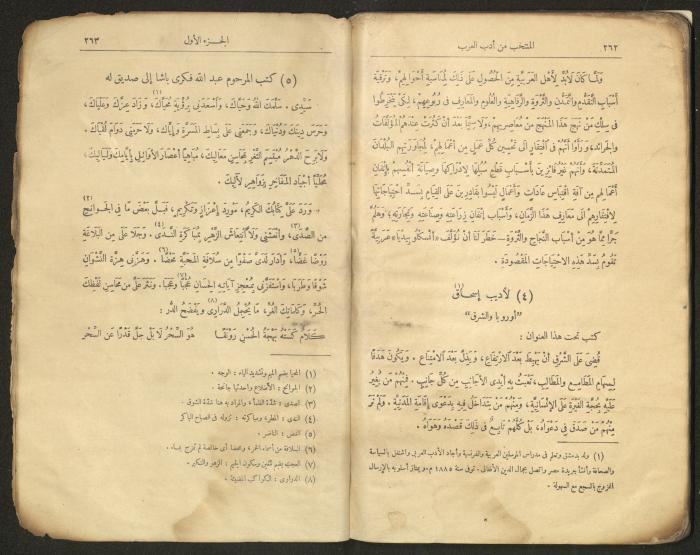 ٢٦٢
المنتخب من أدب العرب
ولما كان لابد لأهل العربية من الحصول على ذلك لمناسبة أحوالهم، وترقية
أسباب التقدم والتمدن والثروة والرفاهية والعلوم والمعارف في ربوعهم، لكي ينخرطوا
في سلك من نهج هذا المنهج من معاصريهم، ولا سيما بعد أن كثرت عندهم المؤلفات
والجرائد، ورأوا أنهم في افتقار إلى تحسين كل عمل من أعمالهم، لمجاورتهم البلدان
المتمدنة، وأنهم غير فائزين بأسباب قطع سبلها لإدراكها وصيانة أنفسهم بإتقان
أعمالهم من آفة اقتباس عادات وأعمال ليسوا بقادرين على القيام بسد احتياجاتها
لافتقارهم إلى معارف هذا الزمان، وأسباب إتقان زراعته وصناعته وتجارته، وهلم
جرا مما هو من أسباب النجاح والثروة – خطر لنا أن نؤلف «أنسكلوبيديا» عربية
تقوم بسد هذه الاحتياجات المقصودة .
(٤) لأديب إسحاق (١)
"أوروبا والشرق"
كتب تحت هذا العنوان :
قضي على الشرق أن يهبط بعد الارتفاع، ويذل بعد الامتناع . ويكون هدفا
لسهام المطامع والمطالب، تعبث به أيدى الأجانب من كل جانب . فمنهم من يغير
عليه بحجة الغيرة على الإنسانية، ومنهم من يتداخل فيه بدعوى إقامة المدنية . ولم نر
منهم من صدق في دعواه، بل كلهم تابع في ذلك قصده وهواه .
(١) ولد بدمشق وتعلم في مدارس المرسلين العربية والفرنسية وأجاد الأدب العربي واشتغل بالسياسة
والصحافة وأنشأ بجريدة مصر واتصل بجمال الدين الأفغاني . توفي سنة ١٨٨٥ م، ويمتاز أسلوبه بالإرسال
المزوج بالسجع مع السهولة .
الجزء الأول
٢٦٣
(٥) كتب المرحوم عبد الله فكرى باشا إلى صديق له
سيدى . سلمك الله وحياك، وأسعدني برؤية محياك (١)، وزاد عزك وعلياك،
وحرس دينك ودنياك، وجمعني على بساط المسرة وإياك، ولا حرمني دوام لقياك .
ولا برح الدهر مقتسم الثغر بمحاسن معاليك، مباهيا أعصار الأوائل بأيامك ولياليك،
محليا أجياد المفاخر بزواهر لآليك .
ورد على كتابك الكريم، مورد إعزاز وتكريم، فبل بعض ما في الجوانح (٢)
من الصدى (٣)، وأنعشني ولا انتعاش الزهر بمباكرة الندى (٤) . وجلا على من البلاغة
روضا غضا (٥)، وأدار لدى صفوا من سلافة المحبة محضا (٦) . وهزني هزة النشوان
شوقا وطربا، واستفزني بمعجز آياته الحسان عجبا (٧) وعجبا . ونثر على من محاسن لفظك
الحر، وكلماتك الغر، ما يخجل الدرارى (٨) ويفضح الدر :
كلام كسته بهجة الحسن رونقا هو السحر لا بل جل قدرا عن السحر
(١) المحيا بضم الميم وتشديد الياء : الوجه .
(٢) الجوانح : الأضلاع واحدتها جانحة .
(٣) الصدى : شدة الظمأ، والمراد به هنا شدة الشوق .
(٤) الندى : المطر، ومباكرته : نزوله في الصباح الباكر
(٥) الغض : الناضر .
(٦) السلافة من أسماء الخمر، ومحضا أى خالصة لم تمزج بماء .
(٧) العجب بضم العين وسكون الجيم : الزهو والتكبر .
(٨) الدرارى : الكواكب المضيئة .